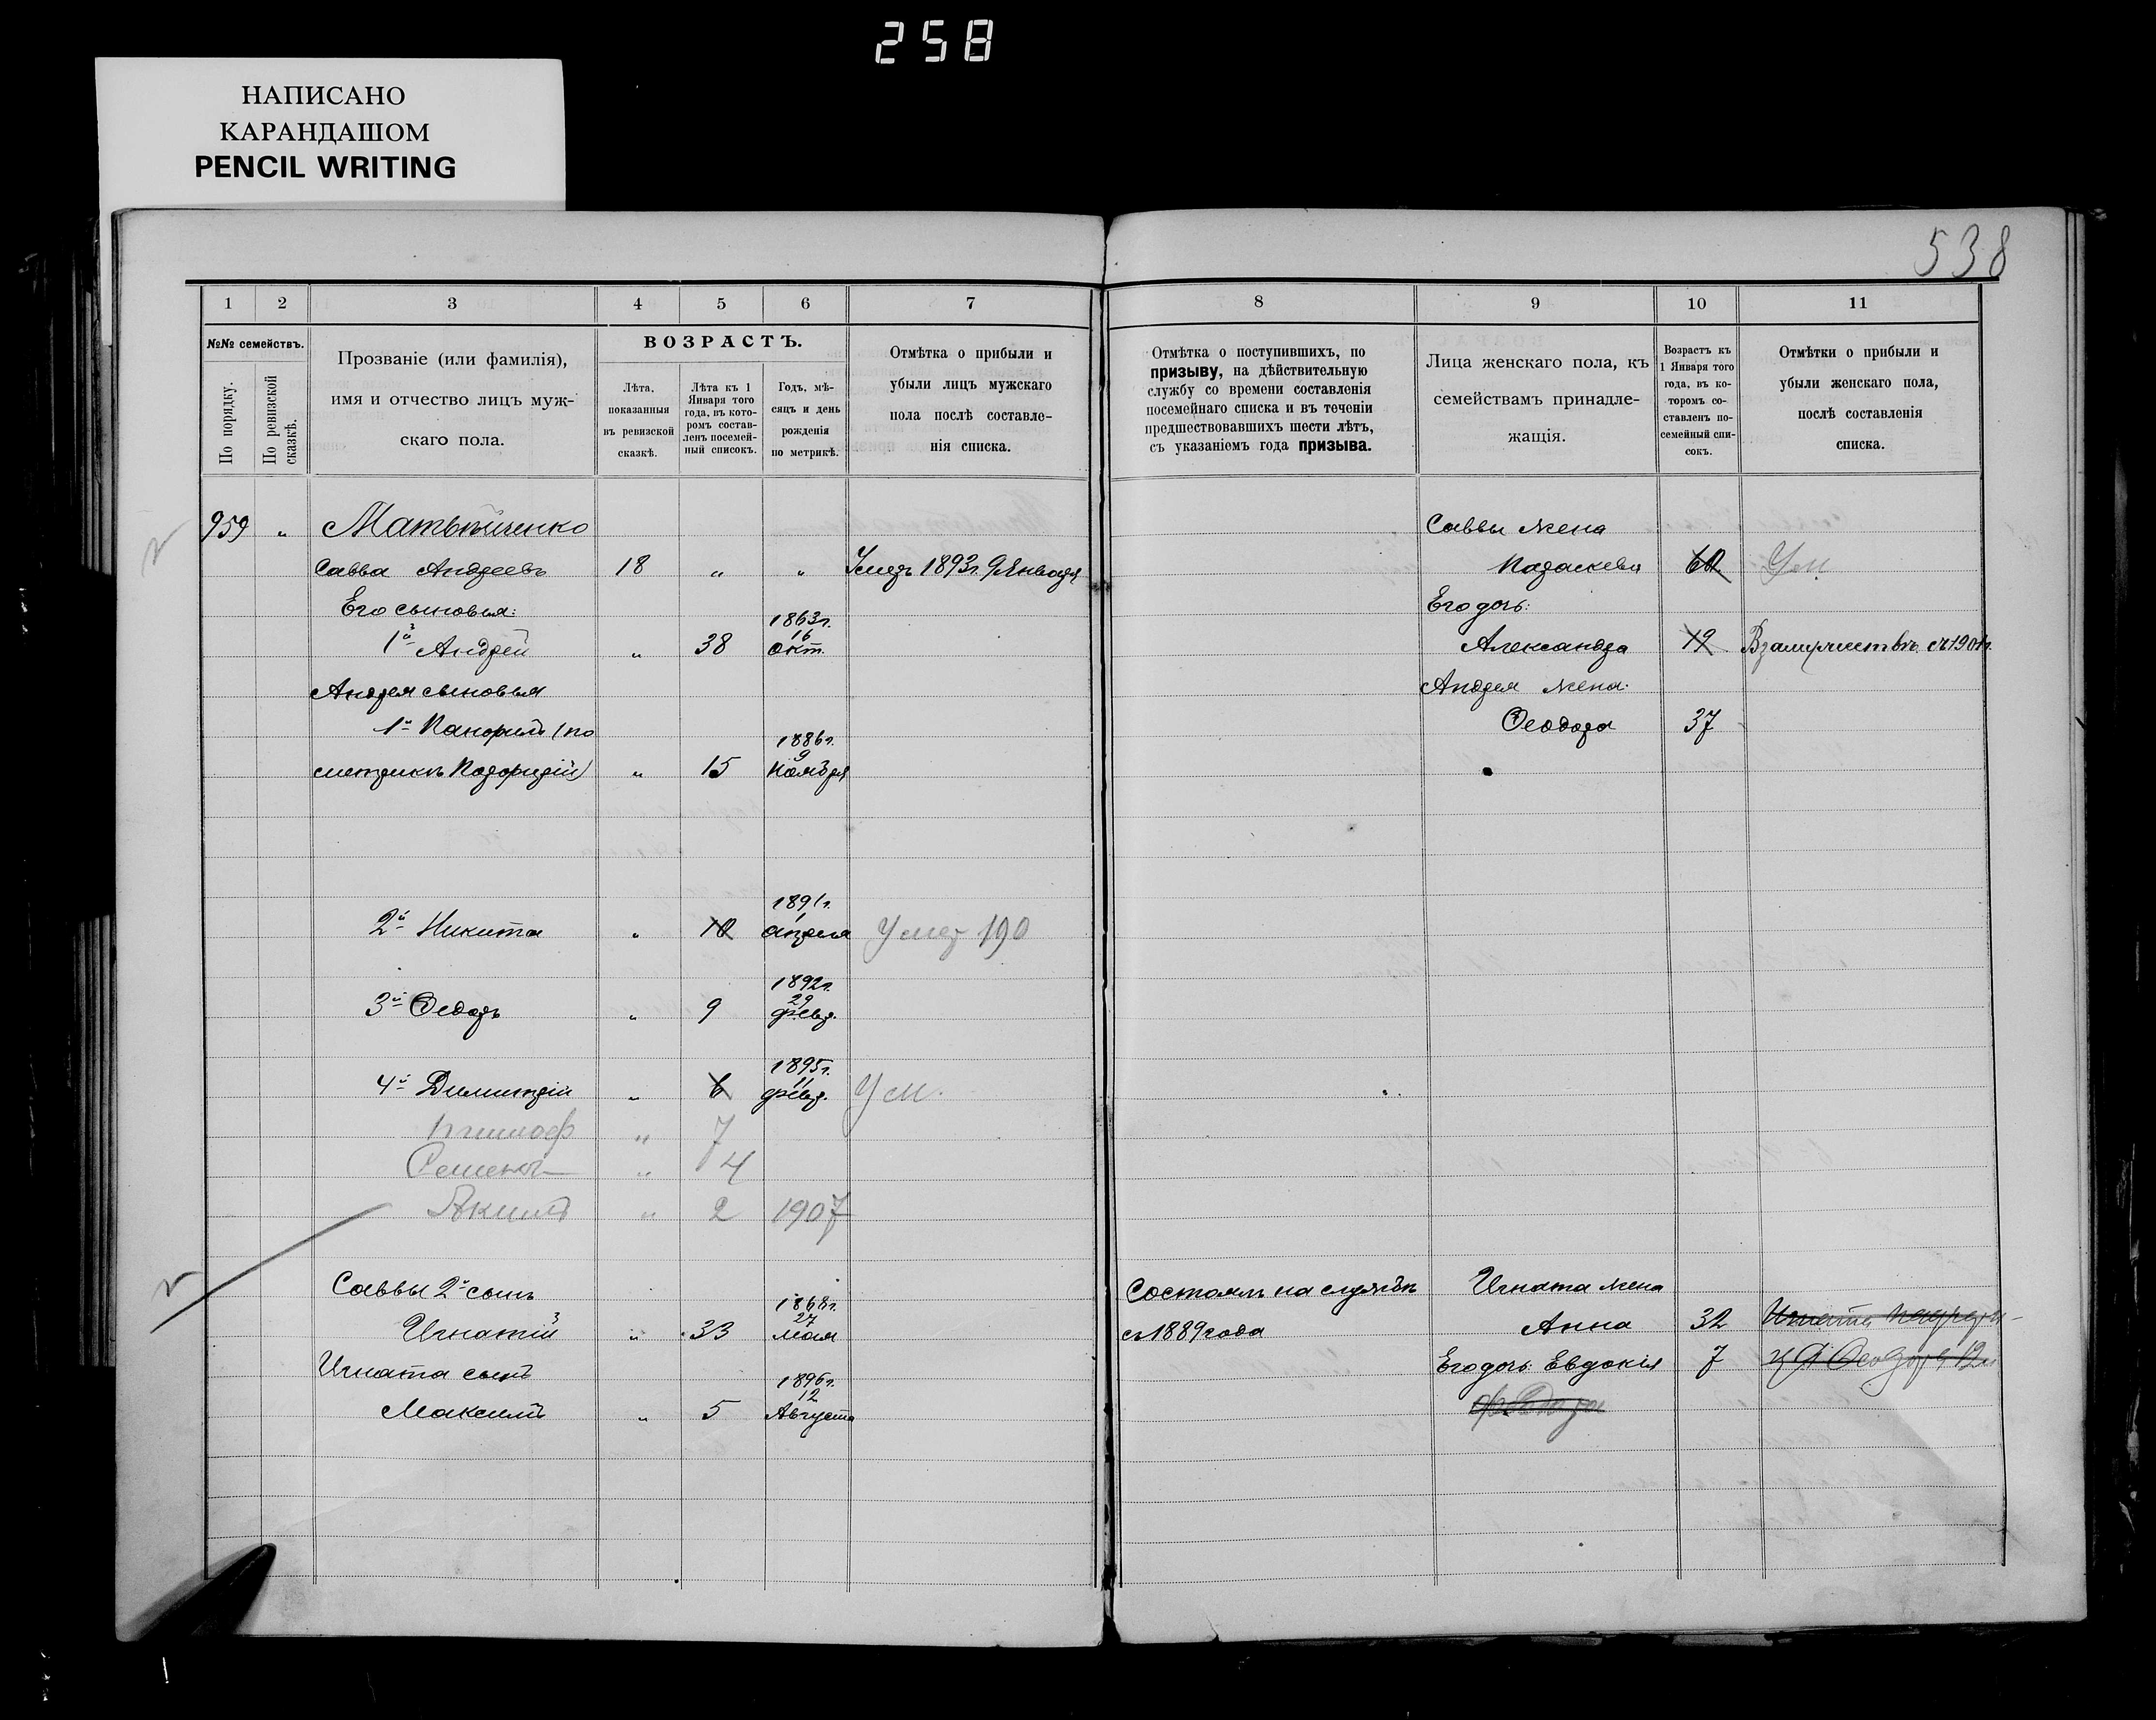 258
НАПИСАНО
КАРАНДАШОМ
PENCIL WRITING
538
1 2 3 4 5 6 7 8 9 10 11
№№ семействъ.
По порядку.
По ревизской сказкѣ.
Прозваніе (или фамилія),
имя и отчество лицъ муж-
скаго пола.
ВОЗРАСТЪ.
Лѣта,
показанныя
въ ревизской
сказкѣ.
Лѣта къ 1
Января того
года, въ кото-
ромъ состав-
ленъ посемей-
ный списокъ.
Годъ, мѣ-
сяцъ и день
рожденія
по метрикѣ.
Отмѣтка о прибыли и
убыли лицъ мужскаго
пола послѣ составле-
нія списка.
Отмѣтка о поступившихъ, по
призыву, на дѣйствительную
службу со времени составленія
посемейнаго списка и въ теченіи
предшествовавшихъ шести лѣтъ,
съ указаніемъ года призыва.
Лица женскаго пола, къ
семействамъ принадле-
жащія.
Возрастъ къ
1 Января того
года, въ ко-
торомъ со-
ставленъ по-
семейный спи-
сокъ.
Отмѣтки о прибыли и
убыли женскаго пола,
послѣ составленія
списка.
959 " Матвѣйченко Саввы жена
Савва Андреевъ 18 " " Умеръ 1893г. 9 Января Параскева 60 Ум
Его сыновья: Его дочь:
1й Андрей " 38 1863г. 16 окт. Александра 19 Взамужествѣ съ 1901г.
Андрея сыновья Андрея жена:
1й (по Феодора 37
метрикѣ Порфирій) " 15 1886г. 9 Ноября
2й Никита " 10 1891г. 1 апреля Умер 190
3й Федоръ " 9 1892г. 29 февр.
4й Димитрій " 6 1895г. 11 февр. Ум.
" 7
Семенъ " 4
Якимъ " 2 1907
Саввы 2й сынъ Состоялъ на службѣ Игната жена
Игнатій " 33 1868г. 27 Мая съ 1889 года Анна 32
Игната сынъ Его дочь: Евдокія 7
Максимъ " 5 1896г. 12 Августа